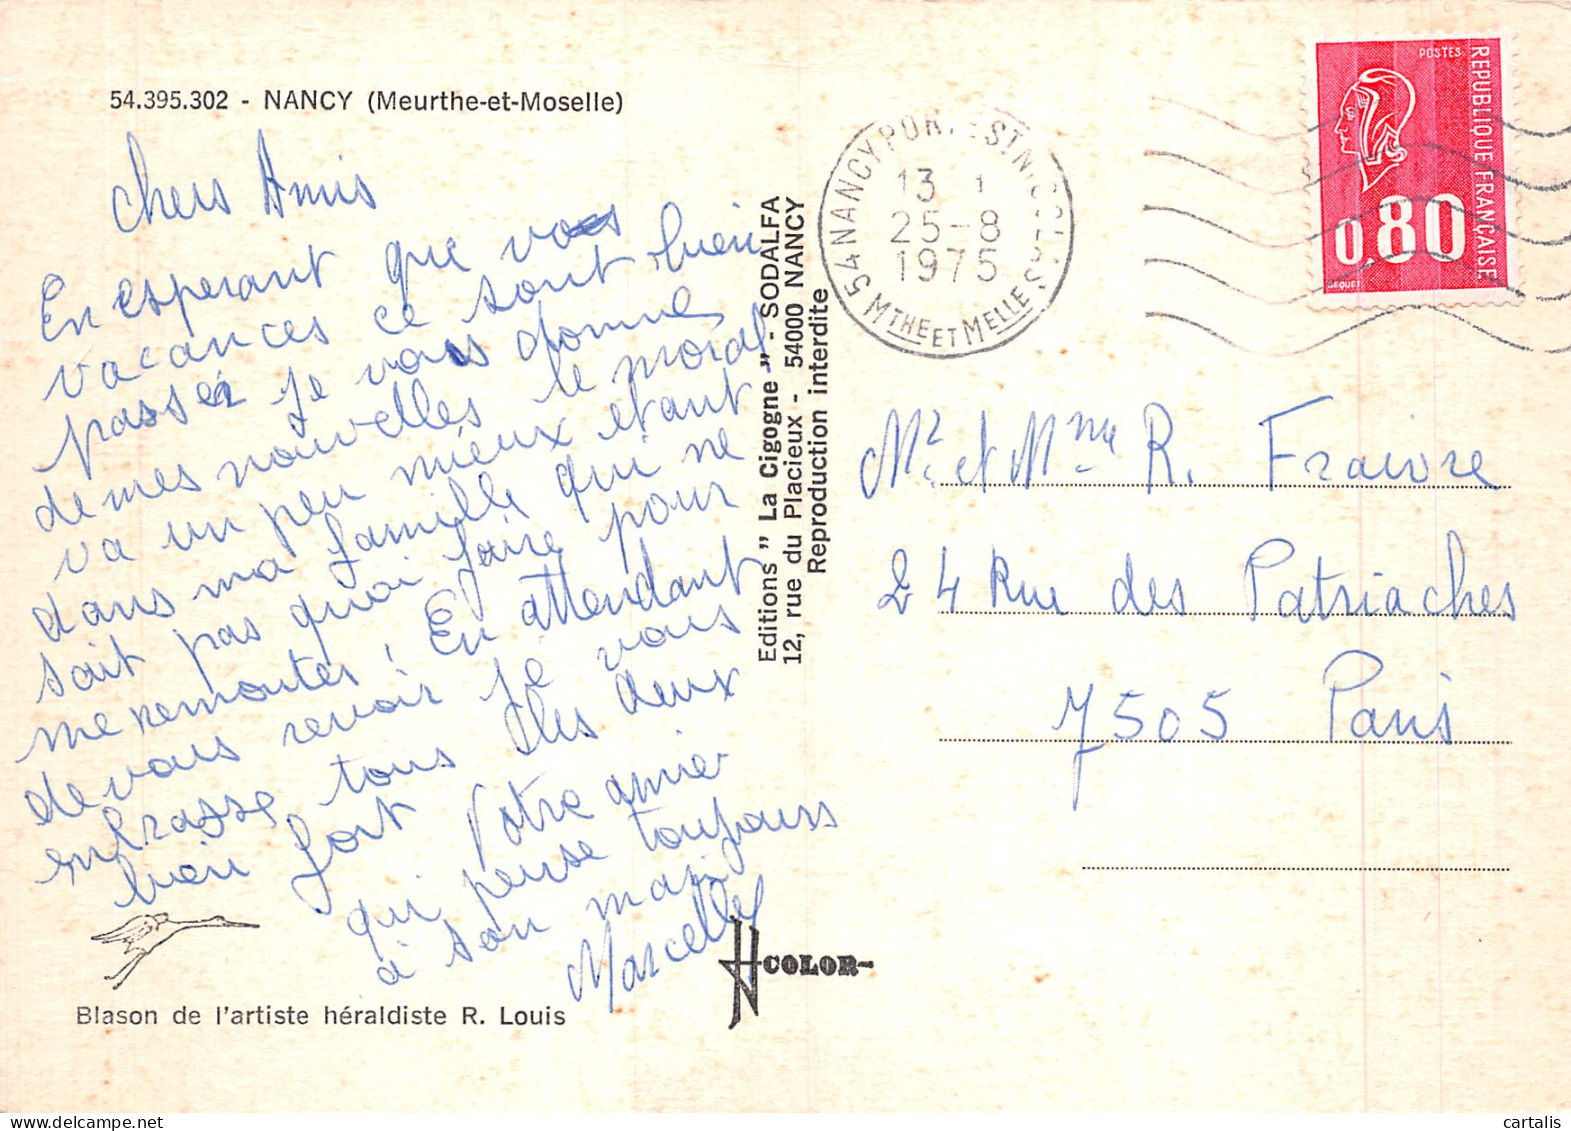 54.395.302 - NANCY (Meurthe-et-Moselle)
chers Amis
En esperant que vos
vacances ce sont bien
passer je vous donne
de mes nouvelles le moral
va un peu mieux etant
dans ma famille qui ne
sait pas quoi faire pour
me remonter. En attendant
de vous revoir je vous
embrasse tous les deux
bien fort Votre amie
qui pense toujours
à son mari
Marcelle
Blason de l'artiste héraldiste R. Louis
COLOR
Editions " La Cigogne " - SODALFA
12, rue du Placieux - 54000 NANCY
Reproduction interdite
54 NANCY PORT EST. NICOLAS
13
25-8
1975
MTHE ET MELLE
POSTES
REPUBLIQUE FRANÇAISE
0.80
BEQUET
Mr et Mme R. Fraivre
24 Rue des Patriaches
7505 Paris
cartalis